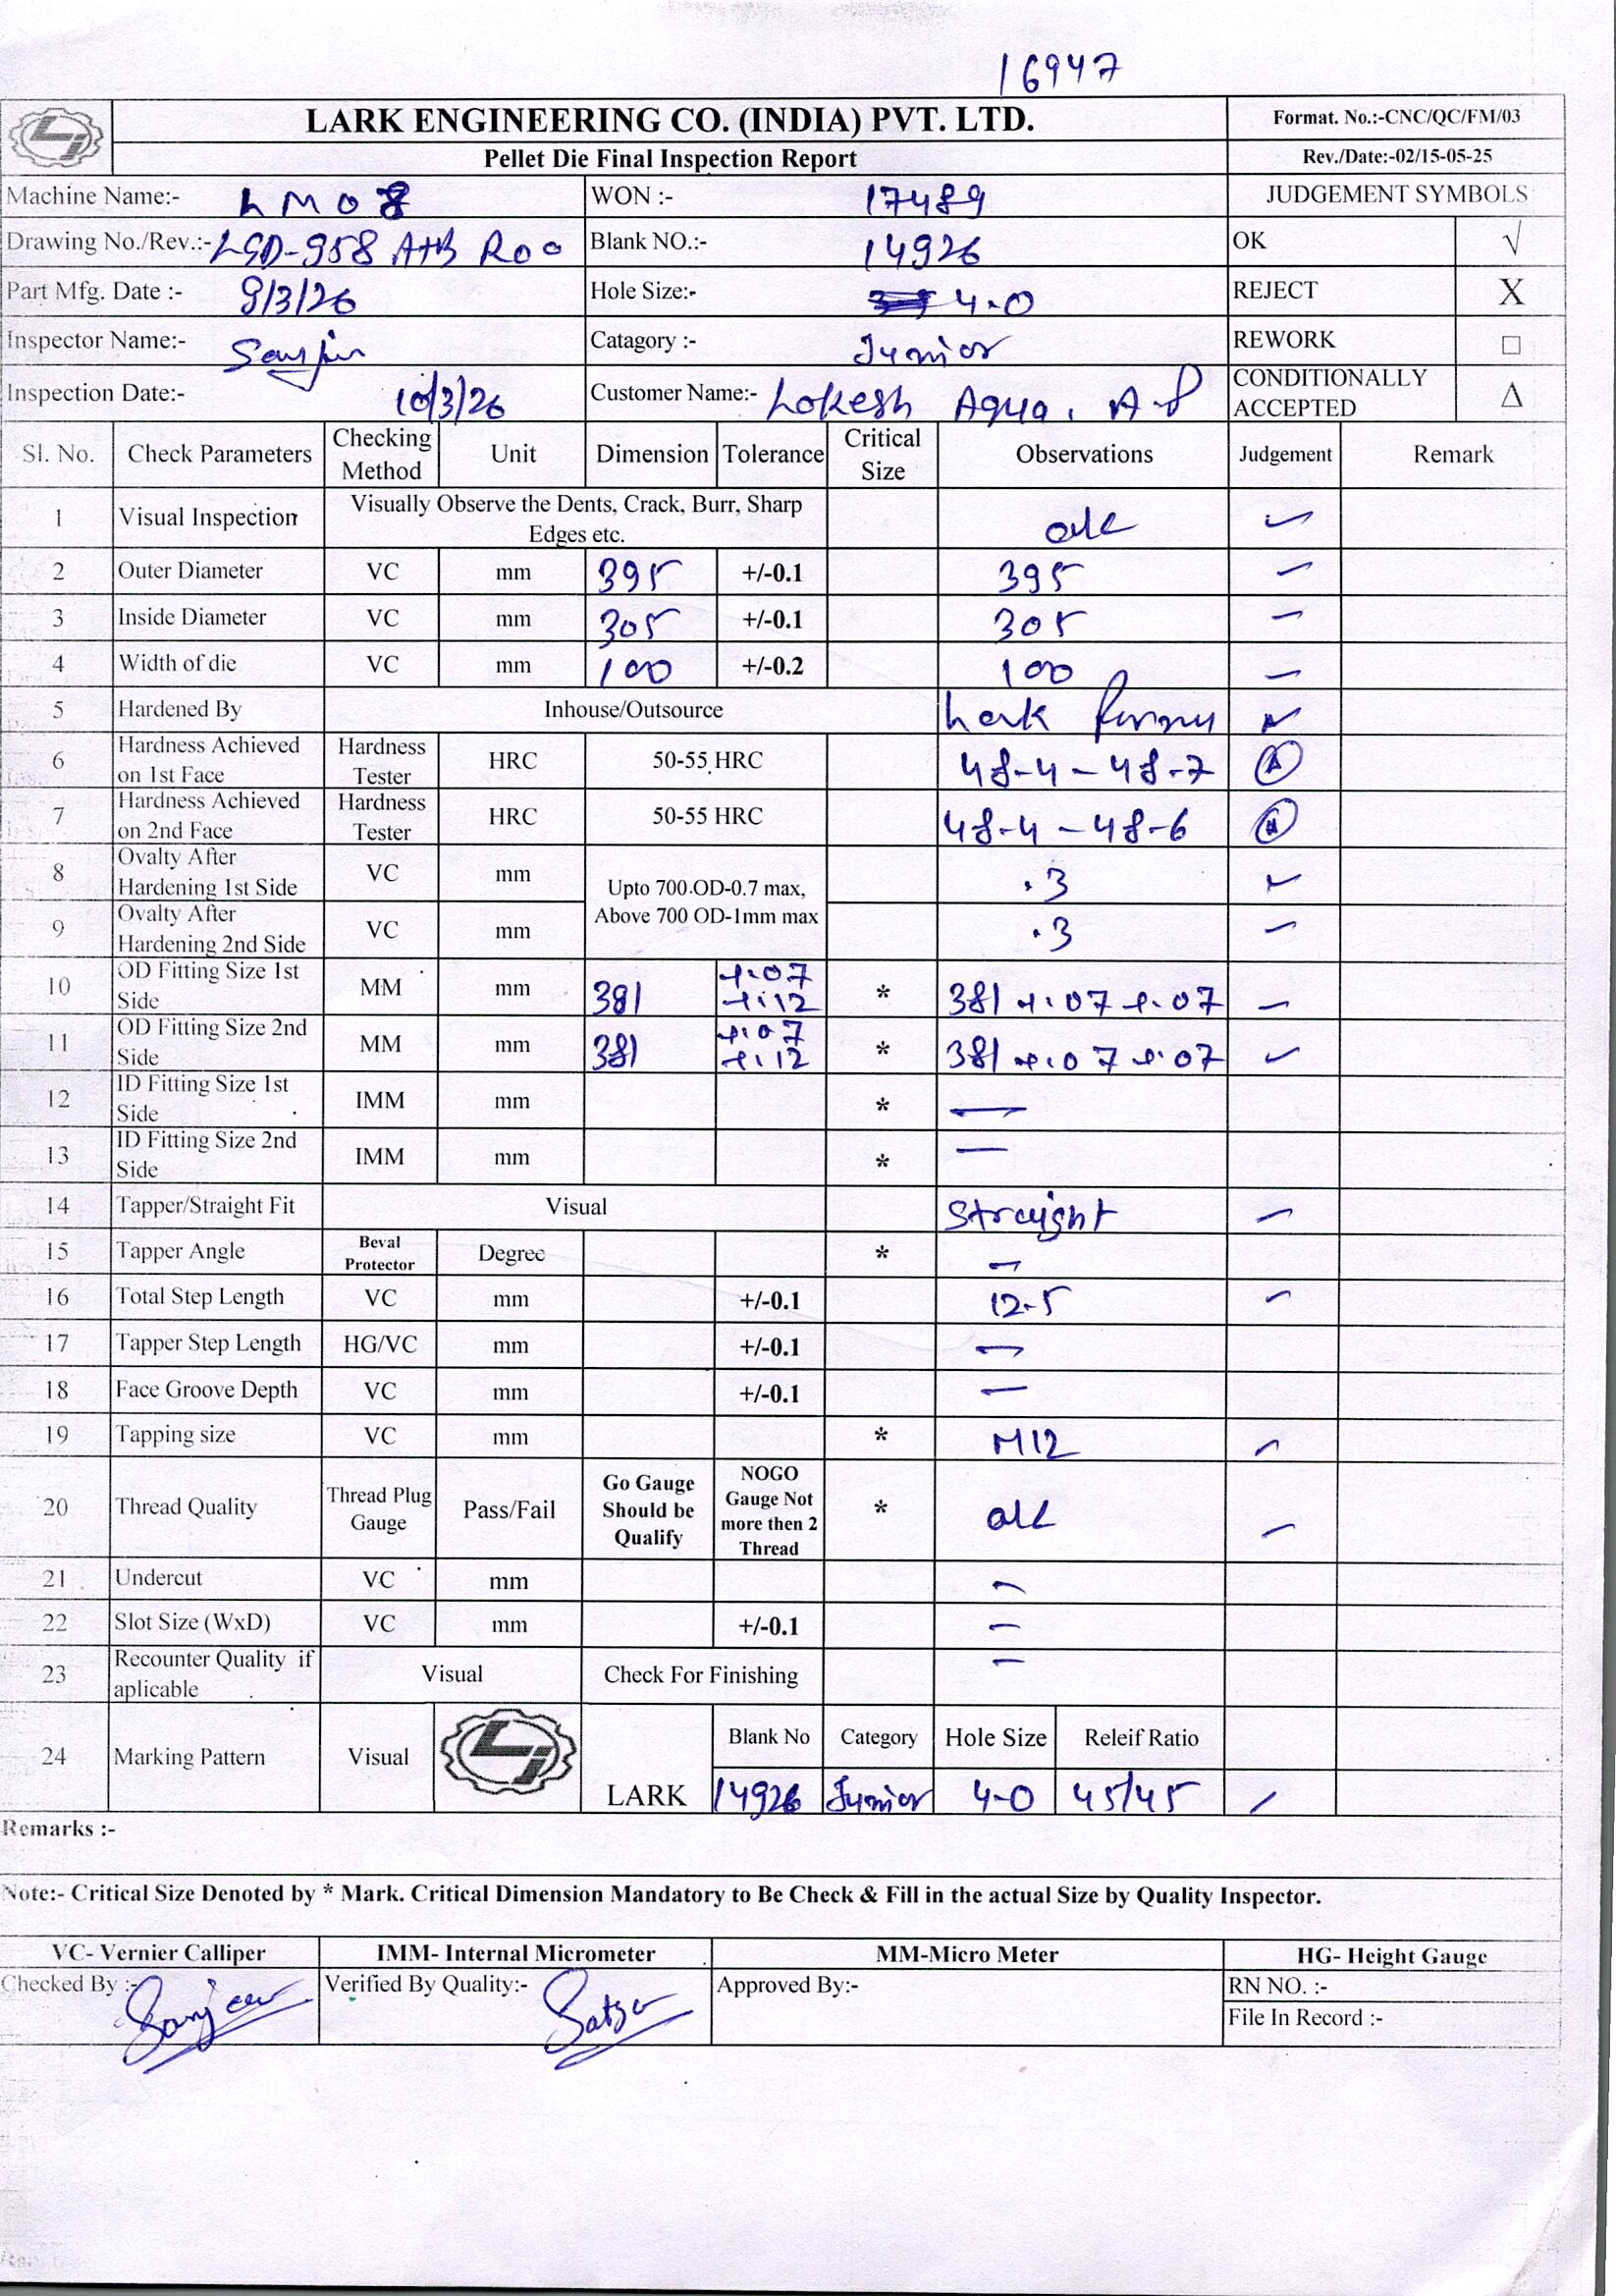 16947
LARK ENGINEERING CO. (INDIA) PVT. LTD.
Format. No.:-CNC/QC/FM/03
Pellet Die Final Inspection Report
Rev./Date:-02/15-05-25
Machine Name:- LM08 WON :- 17489 JUDGEMENT SYMBOLS
Drawing No./Rev.:- LGD-958 A+B R00 Blank NO.:- 14926 OK √
Part Mfg. Date :- 9/3/26 Hole Size:- 4.0 REJECT X
Inspector Name:- Catagory :- Junior REWORK □
Inspection Date:- 10/3/26 Customer Name:- Lokesh Aqua, A.P CONDITIONALLY ACCEPTED Δ
Sl. No. Check Parameters Checking Method Unit Dimension Tolerance Critical Size Observations Judgement Remark
1 Visual Inspection Visually Observe the Dents, Crack, Burr, Sharp Edges etc. ok ✓
2 Outer Diameter VC mm 395 +/-0.1 395 ✓
3 Inside Diameter VC mm 305 +/-0.1 305 ✓
4 Width of die VC mm 100 +/-0.2 100 ✓
5 Hardened By Inhouse/Outsource Lark ✓
6 Hardness Achieved on 1st Face Hardness Tester HRC 50-55 HRC 48.4 - 48.7
7 Hardness Achieved on 2nd Face Hardness Tester HRC 50-55 HRC 48.4 - 48.6
8 Ovalty After Hardening 1st Side VC mm Upto 700 OD-0.7 max, Above 700 OD-1mm max .3 ✓
9 Ovalty After Hardening 2nd Side VC mm .3 ✓
10 OD Fitting Size 1st Side MM mm 381 +.07 +.12 * 381 +.07 +.07 ✓
11 OD Fitting Size 2nd Side MM mm 381 +.07 +.12 * 381 +.07 +.07 ✓
12 ID Fitting Size 1st Side IMM mm * —
13 ID Fitting Size 2nd Side IMM mm * —
14 Tapper/Straight Fit Visual Straight ✓
15 Tapper Angle Beval Protector Degree * —
16 Total Step Length VC mm +/-0.1 12.5 ✓
17 Tapper Step Length HG/VC mm +/-0.1 —
18 Face Groove Depth VC mm +/-0.1 —
19 Tapping size VC mm * M12 ✓
20 Thread Quality Thread Plug Gauge Pass/Fail Go Gauge Should be Qualify NOGO Gauge Not more then 2 Thread * ok ✓
21 Undercut VC mm —
22 Slot Size (WxD) VC mm +/-0.1 —
23 Recounter Quality if aplicable Visual Check For Finishing —
24 Marking Pattern Visual LARK Blank No Category Hole Size Releif Ratio
14926 Junior 4.0 45/45 ✓
Remarks :-
Note:- Critical Size Denoted by * Mark. Critical Dimension Mandatory to Be Check & Fill in the actual Size by Quality Inspector.
VC- Vernier Calliper IMM- Internal Micrometer MM-Micro Meter HG- Height Gauge
Checked By :- Sanjeev Verified By Quality:- Approved By:- RN NO. :-
File In Record :-